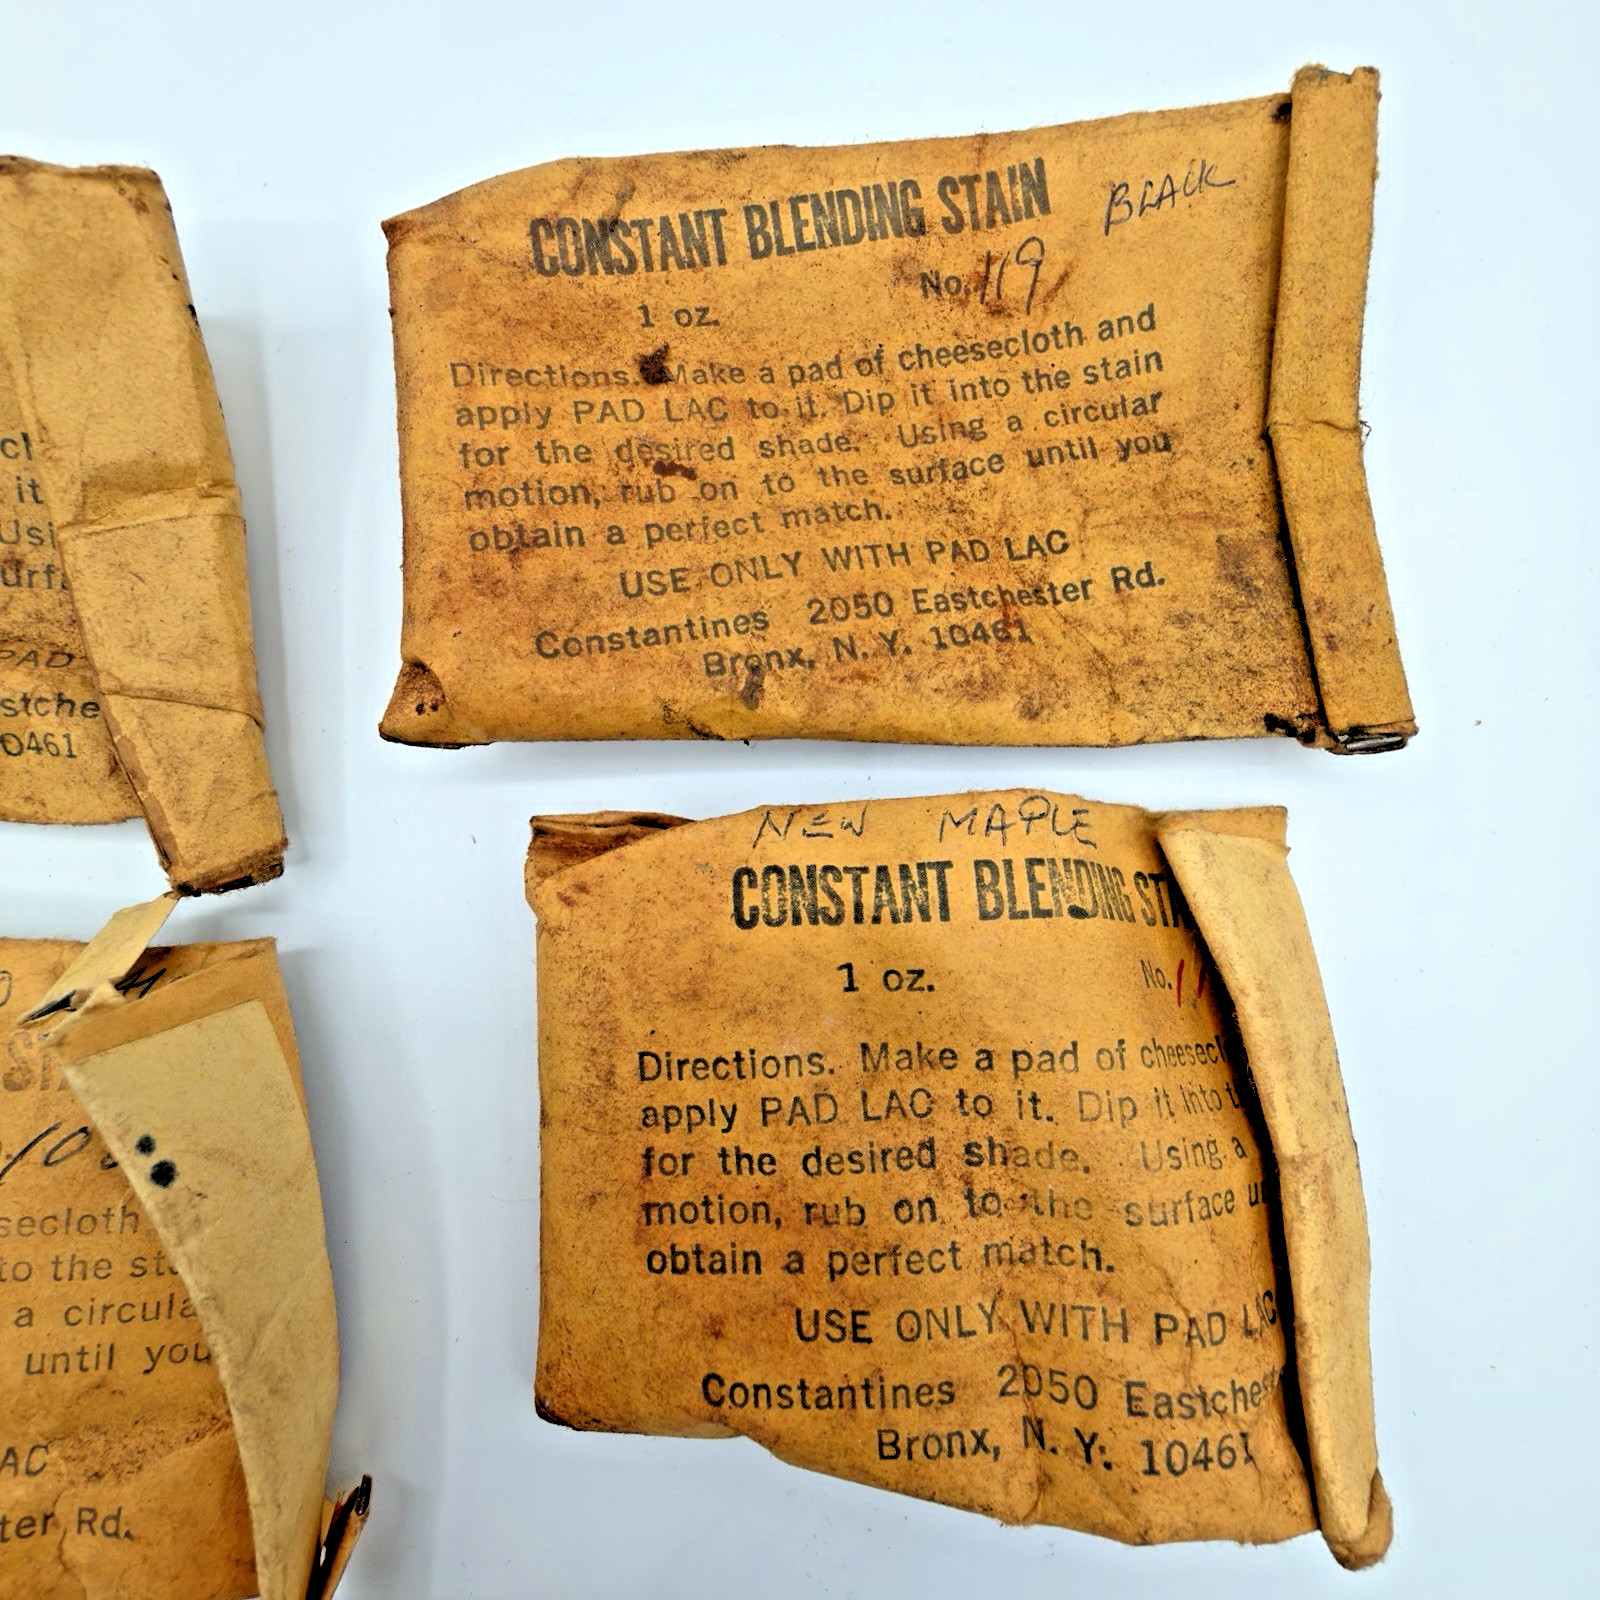 CONSTANT BLENDING STAIN
BLACK
No. 119
1 oz.
Directions. Make a pad of cheesecloth and
apply PAD LAC to it. Dip it into the stain
for the desired shade. Using a circular
motion, rub on to the surface until you
obtain a perfect match.
USE ONLY WITH PAD LAC
Constantines 2050 Eastchester Rd.
Bronx, N. Y. 10461
NEW MAPLE
CONSTANT BLENDING STA
1 oz. No. 11
Directions. Make a pad of cheesecl
apply PAD LAC to it. Dip it into t
for the desired shade. Using a
motion, rub on to the surface u
obtain a perfect match.
USE ONLY WITH PAD LAC
Constantines 2050 Eastches
Bronx, N. Y. 10461
cl
it
Usi
urf
PAD
stche
0461
secloth
to the st
a circula
until you
AC
ter Rd.